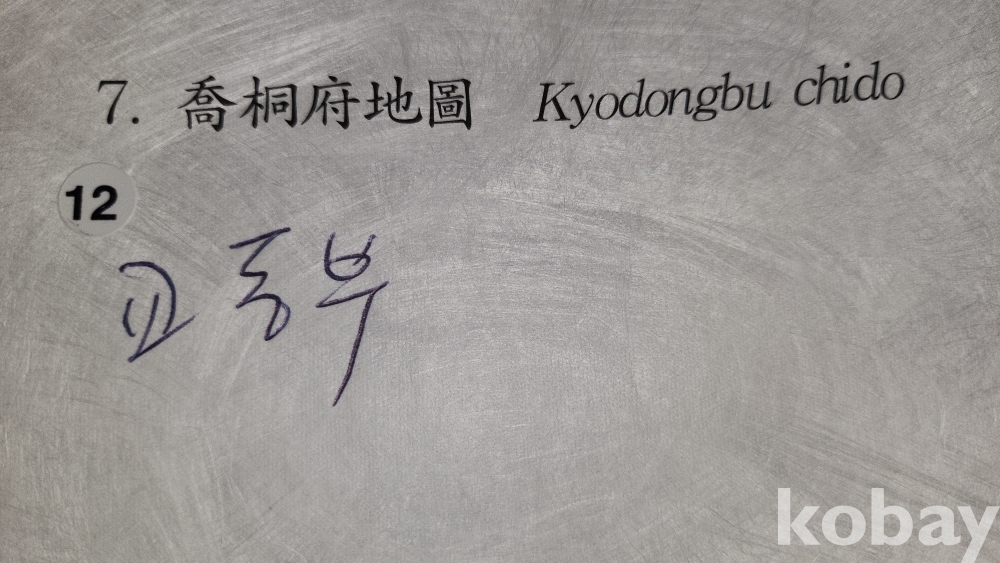 7. 喬桐府地圖 Kyodongbu chido
12
교동부
kobay